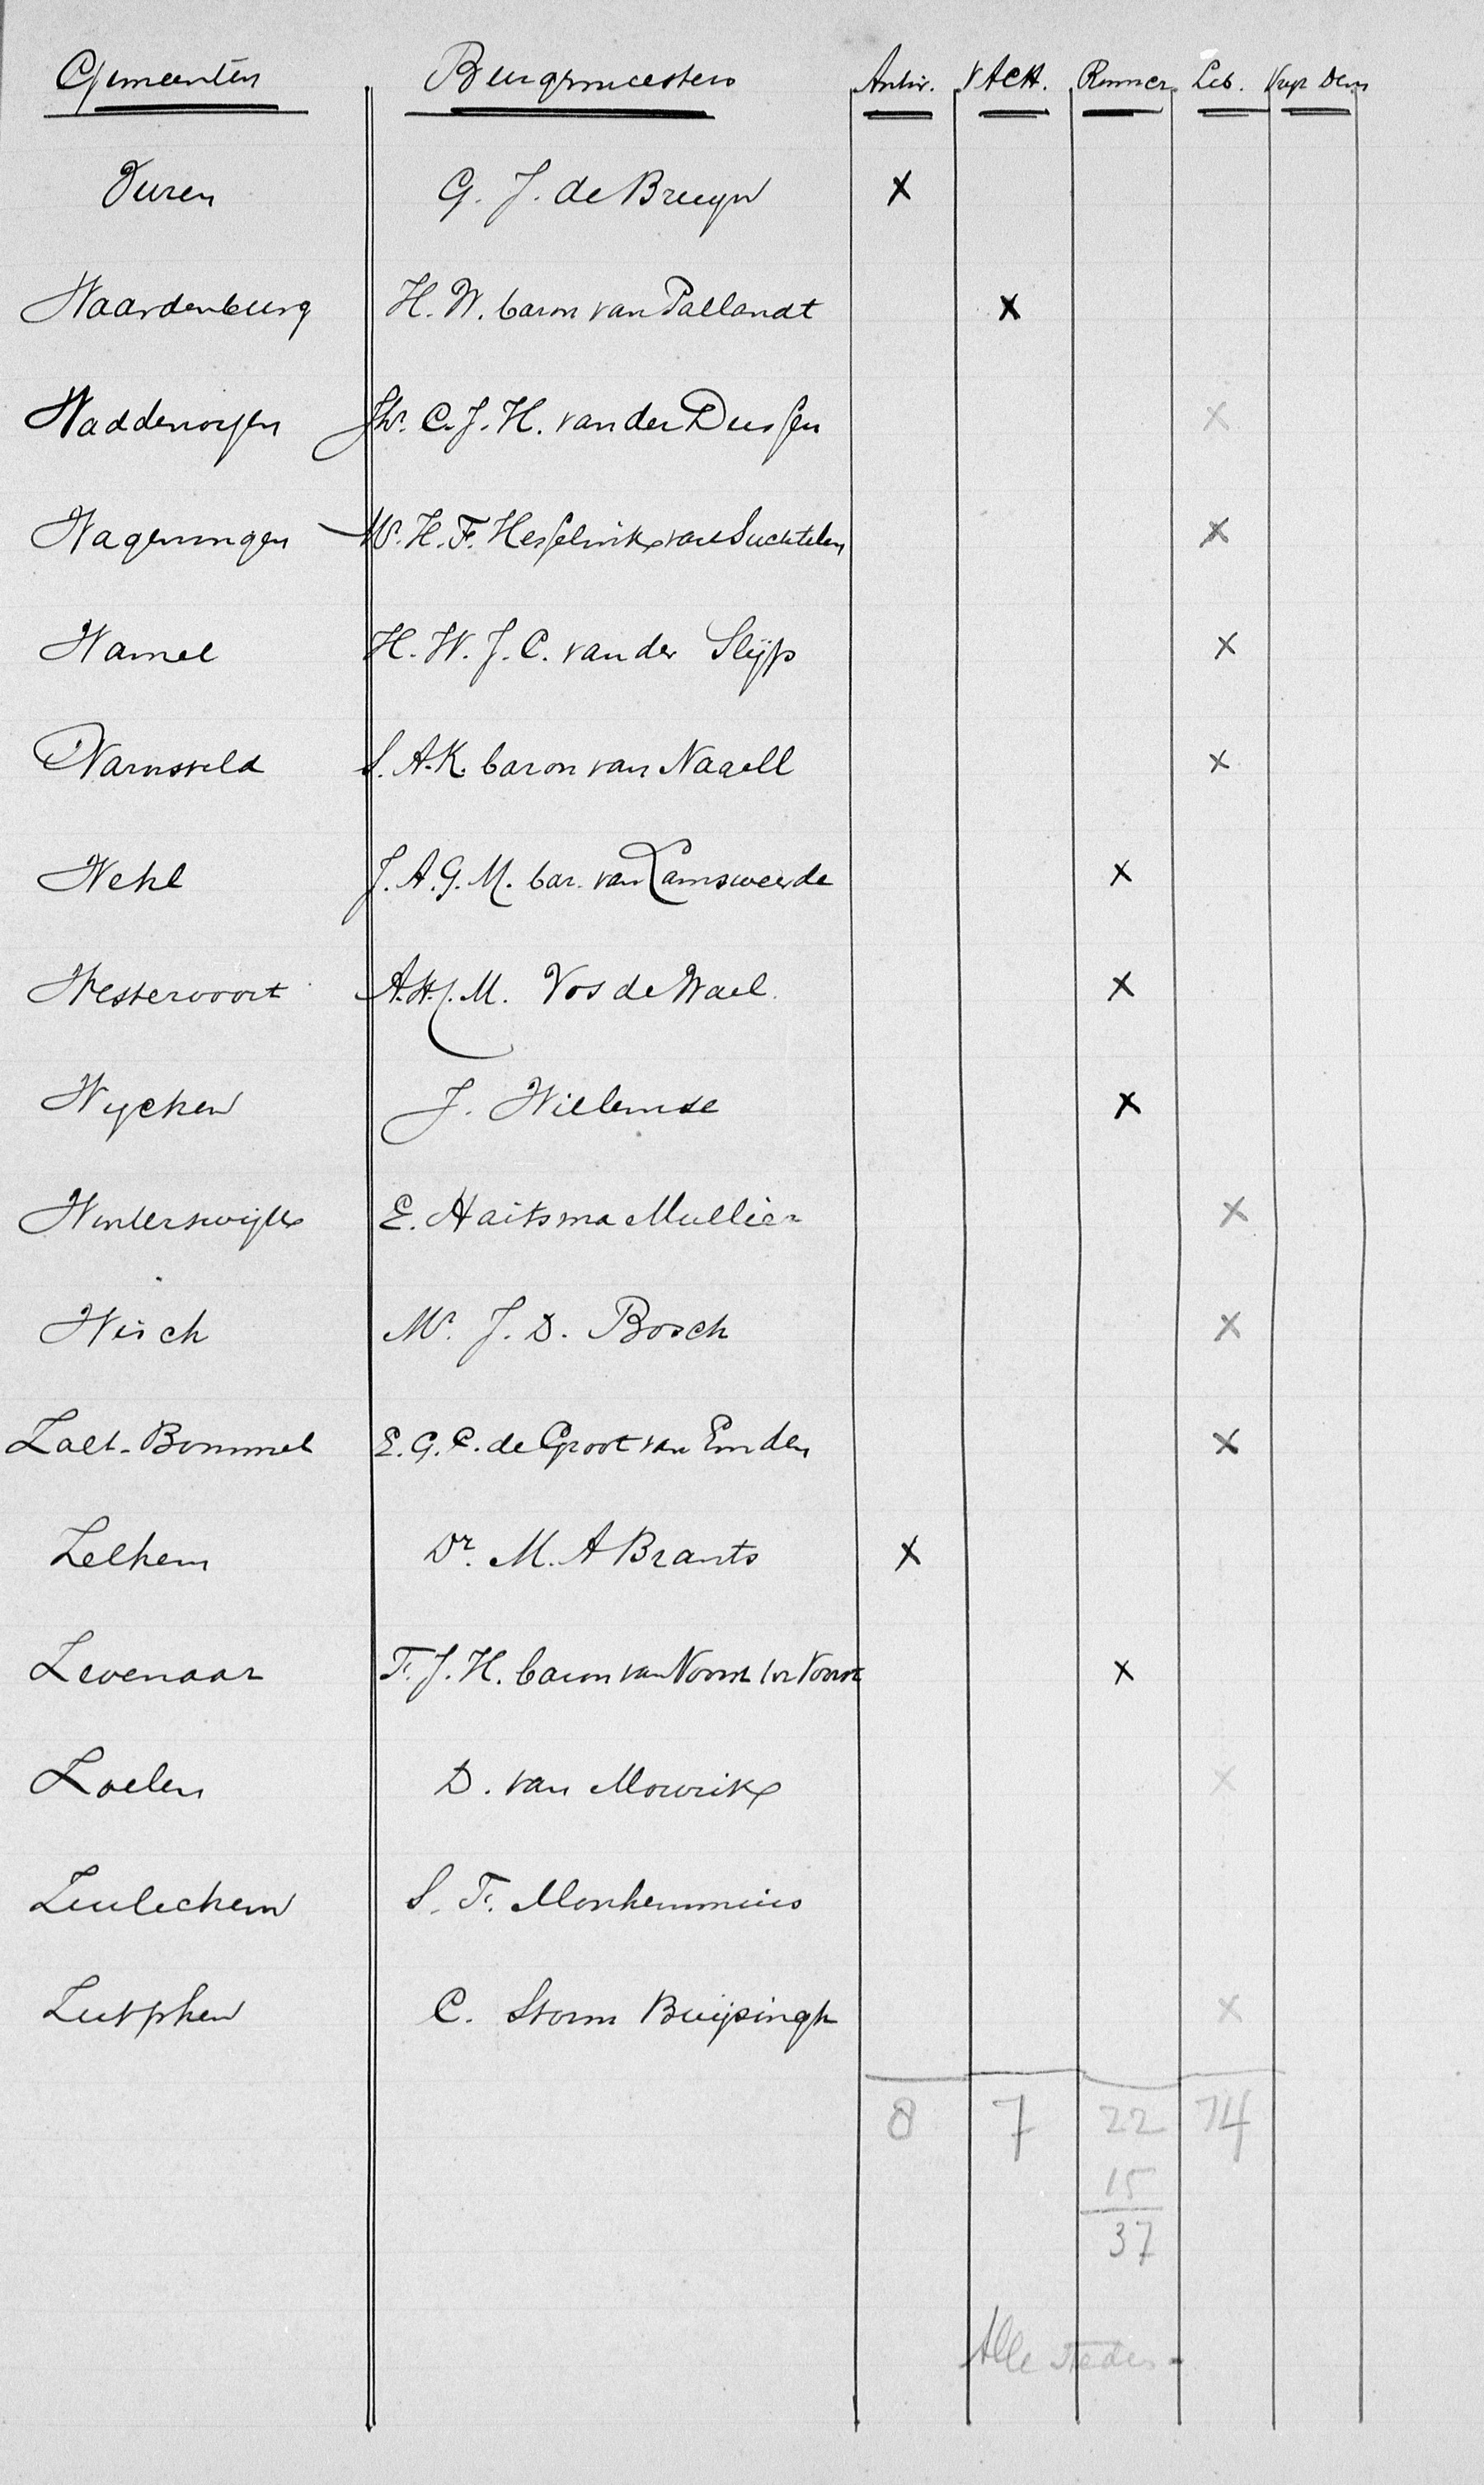 Gemeenten Burgemeesters Antir. V ACH. Roomsch. Lib. Vrijz Dem
Vuren G. J. de Bruyn X
Waardenburg H. W. baron van Pallandt X
Waddenoyen Jhr. C. J. H. van der Dussen X
Wageningen Mr. H. F. Hesselink van Suchtelen X
Wamel H. W. J. C. van der Slijp X
Warnsveld S. A. K. baron van Nagell X
Wehl J. A. G. M. bar. van Lamsweerde X
Westervoort A. H. J. M. Vos de Wael. X
Wychen J. Willemse X
Winterswijk E. Haitsma Mullier X
Wisch Mr. J. D. Bosch X
Zalt-Bommel E. G. C. de Groot van Emden X
Zelhem Dr. M. A Brants X
Zevenaar F. J. H. baron van Voorst tot Voorst X
Zoelen D. van Mourik X
Zuilichem S. F. Monhemius
Zutphen C. Storm Buijsingh X
8 7 22 74
15
37
Alle steden